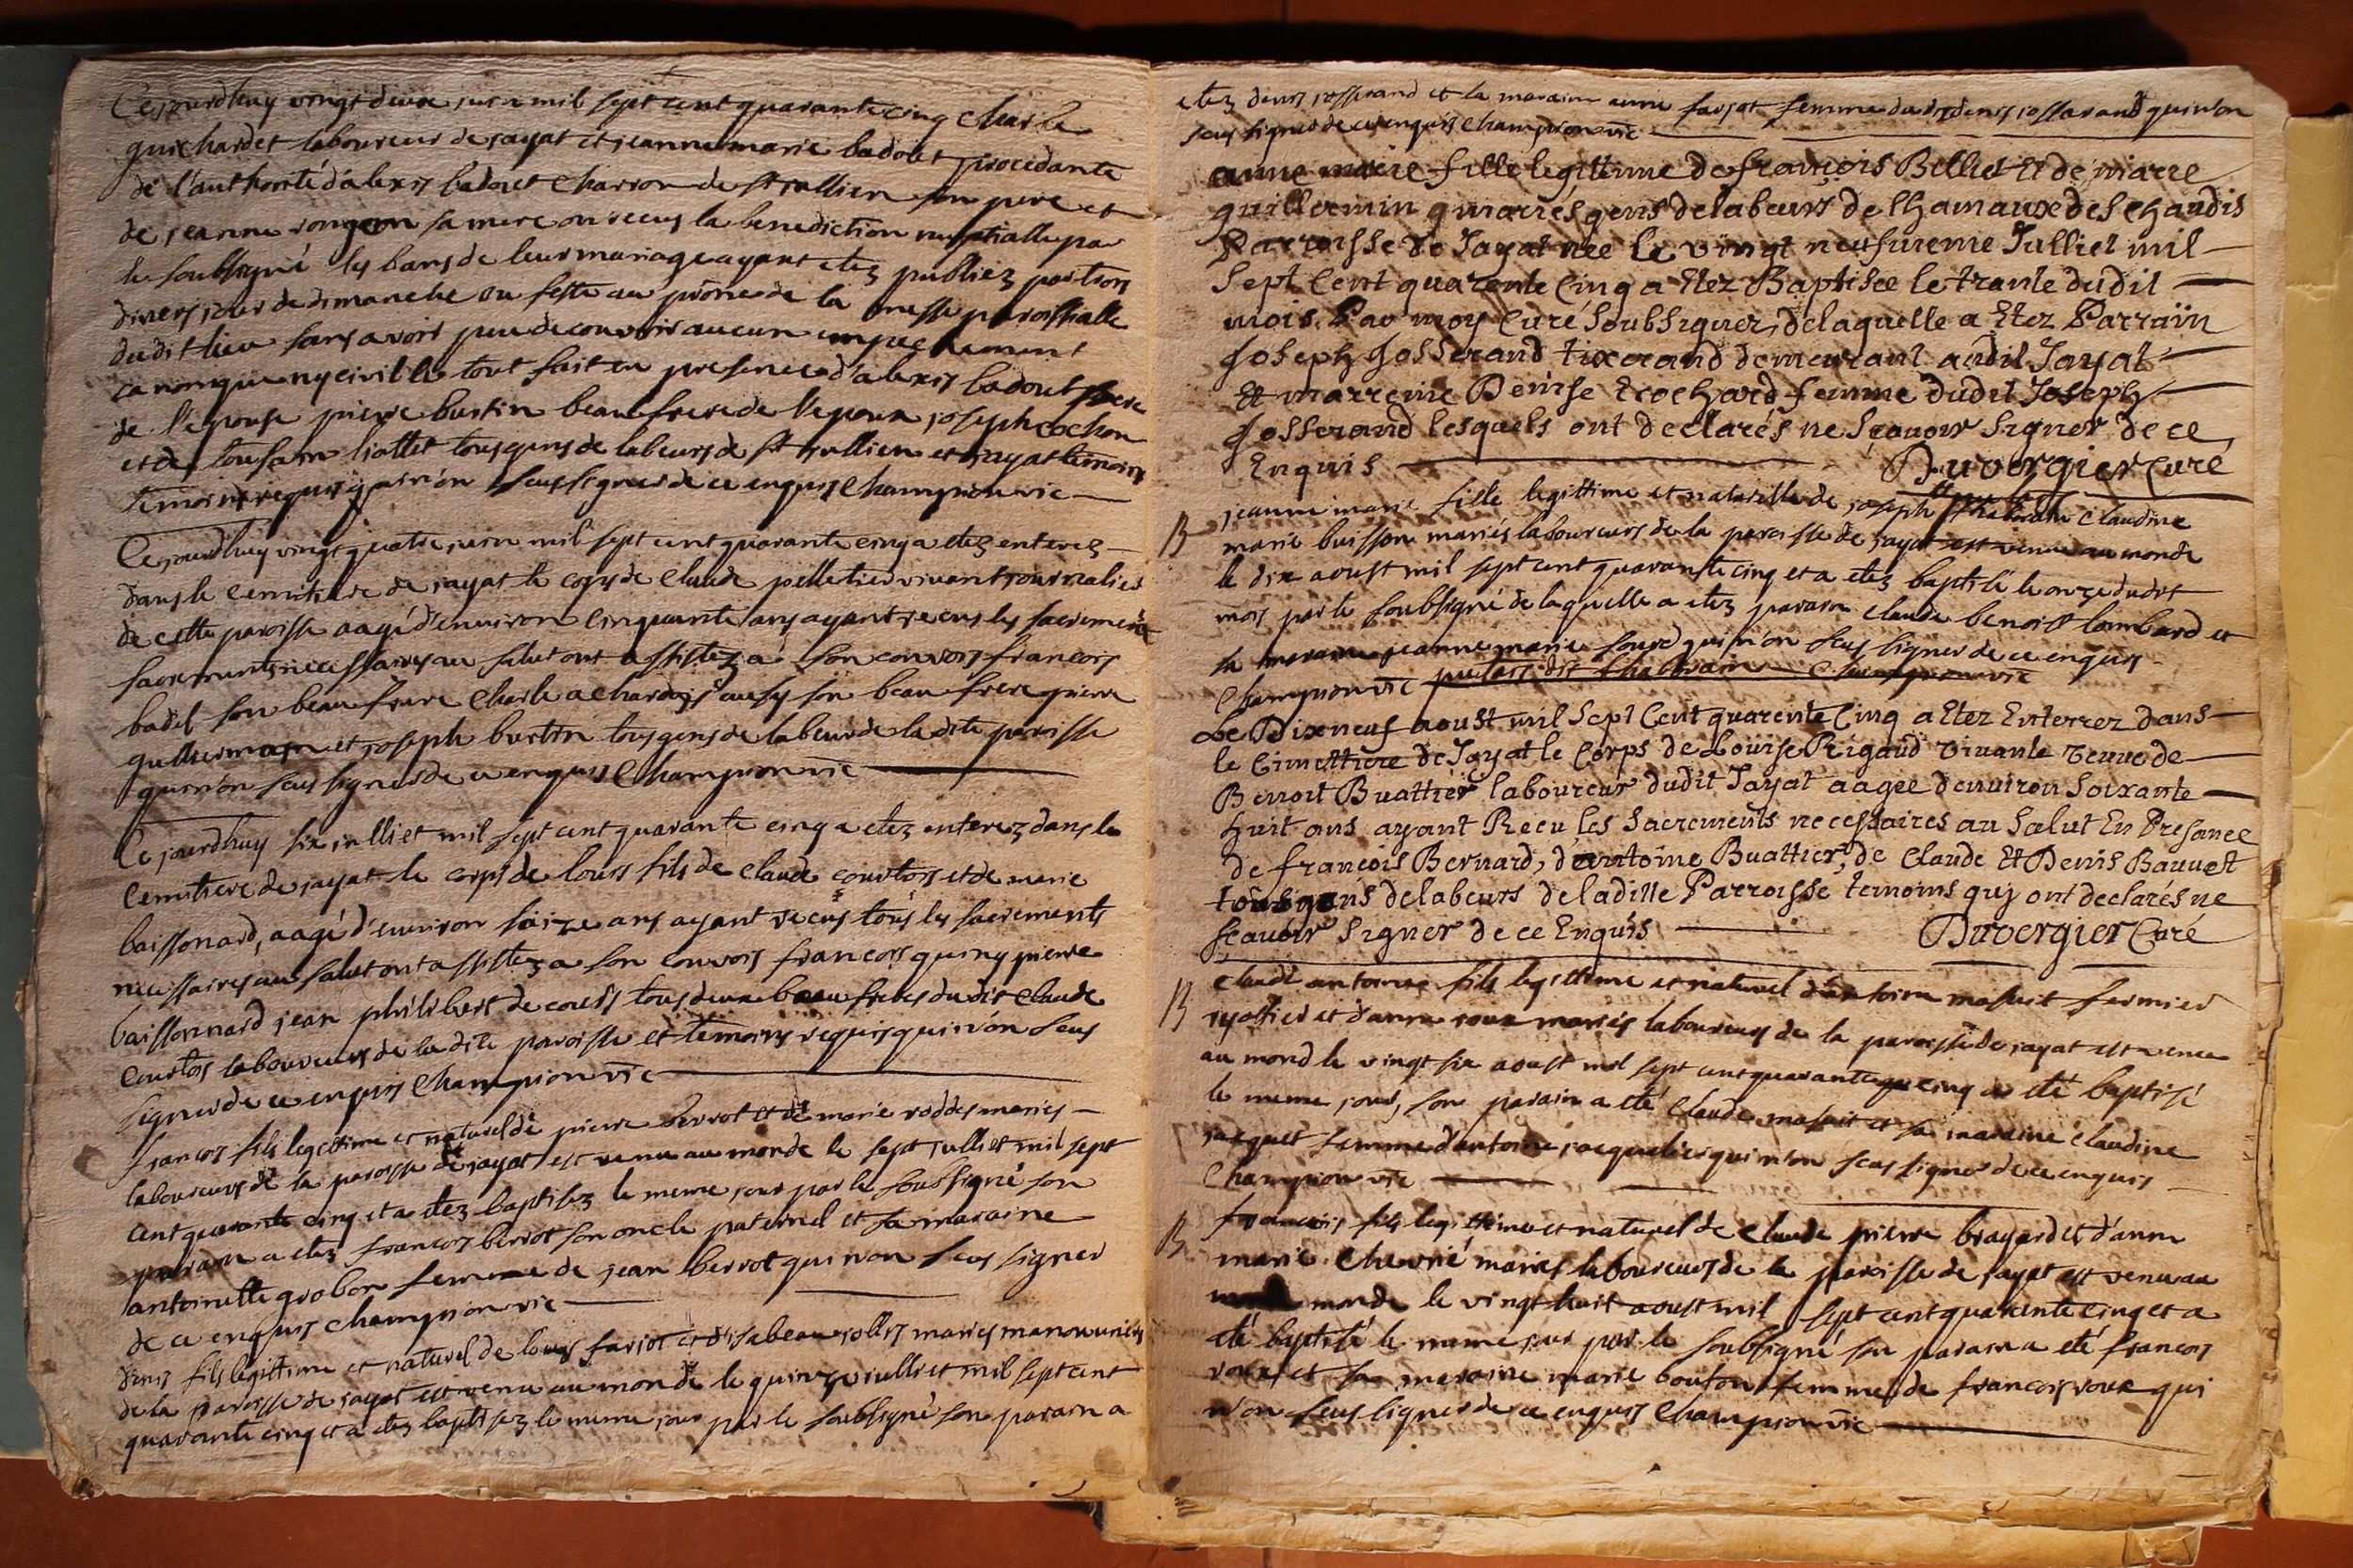 Ce jourdhuy vingt deux juin mil sept cent quarante cinq Charle
guichardet laboureur de jayat et jeanne marie badout procedante
de l'authorité d'alexis badout charron de st jullien son pere et
de jeanne rongeon sa mere on receus la benediction nuptialle par
le soubsigné les bans de leur mariage ayant etez publiez par trois
divers jour de dimanche ou feste au prône de la messe paroissialle
dudit lieu sans avoir peu decouvrir aucun empechement
canonique ny civil le tout fait en presence d'alexis badout pere
de l'epouse pierre burtin beau frere de l'epoux joseph cochon
et de tousain liottet tous gens de labeurs de st jullien et jayat temoins
temoins requis qui n'on seus signer de ce enquis Championvic
Ce jourdhuy vingt quatre juin mil sept cent quarante cinq a etez enterez
dans le cemitiere de jayat le corps de Claude pelletier vivant journalier
de cette paroisse aagé d'environ cinquante ans ayant receus les sacremens
sacrements necessaires au salut ont assistez a son convois francois
badel son beau frere Charle achardy aussy son beau frere pierre
guillermin et joseph burtin tous gens de labeur de la dite paroisse
qui n'on seus signer de ce enquis Championvic
Ce jourdhuy six julliet mil sept cent quarante cinq a etez enterez dans le
cemitiere de jayat le corps de louis fils de Claude courtois et de marie
baissonard, aagé d'environ saize ans ayant receus tous les sacrements
necessaires au salut ont assistez a son convois francois quiny pierre
baissonnard jean philibert de coursis tous deux beau freres du dit Claude
Courtois laboureurs de la dite paroisse et temoins requis qui n'on seus
signer de ce enquis Championvic
francois fils legittime et naturel de pierre berrot et de marie roddes mariés
laboureurs de la paroisse de jayat est venu au monde le sept julliet mil sept
cent quarante cinq et a etez baptisez le meme jour par le soussigné son
parain a etez francois berrot son oncle paternel et sa maraine
antoinette grobon femme de jean berrot qui n'on seus signer
de ce enquis Championvic
denis fils legittime et naturel de louis farjot et d'isabeau jollis mariés manouvriers
de la paroisse de jayat est venu au monde le quinze julliet mil sept cent
quarante cinq et a etez baptisez le meme jour par le soubsigné son parain a
etez denis josserand et la maraine anne farjot femme dudit denis josserand qui n'on
seus signer de ce enquis Championvic
anne marie fille legittime de françois Billiet et de marie
guillermin mariés gens de labeurs de lhamaux des Chaudis
Parroisse de Jayat née le vingt neufvieme Julliet mil
Sept Cent quarente Cinq a Etez Baptisée le trante dudit
mois Par moy Curé Soubsignez, de laquelle a Etez Parrain
Joseph Josserand tixerand demeurant audit Jayat
Et marreine Denise trochard femme dudit Joseph
Josserand lesquels ont declarés ne sçavoir signer de ce
Enquis Duvergier Curé
B jeanne marie fille legittime et naturelle de joseph Claudine
marie buisson mariés laboureurs de la paroisse de jayat est venue au monde
le dix aoust mil sept cent quarante cinq et a etez baptisé le onze dudit
mois par le soubsigné de laquelle a etez parain Claude benoist lombard et
sa maraine jeanne marie soupe qui n'on seus signer de ce enquis
Championvic Championvic
Le Dixneuf aoust mil Sept Cent quarente Cinq a Etez Enterrez dans
le Cimettiere de Jayat le Corps de Louise Rigaud vivante veuve de
Benoit Buattier laboureur dudit Jayat aagée d'environ Soixante
huit ans ayant Recu les Sacrements necessaires au Salut En Presance
de françois Bernard, d'antoine Buattier, de Claude Et Denis Bauvet
tous gens de labeurs de ladille Parroisse temoins quj ont declarés ne
sçavoir Signer de ce Enquis Duvergier Curé
B Claude antoine fils legittime et naturel d'antoine masuit fermier
et d'anne roux mariés laboureurs de la paroisse de jayat est venu
au mond le vingt six aoust mil sept cent quarante cinq a eté baptisé
le meme jour, son parain a eté Claude masuit et sa maraine claudine
jacquet femme d'antoine jacquelier qui n'on seus signer de ce enquis
Championvic
B francois fils legittime et naturel de Claude pierre brayard et d'anne
marie Chevrié mariés laboureurs de la paroisse de jayat est venu au
monde le vingt huit aoust mil sept cent quarante cinq et a
eté baptisé le meme jour par le soubsigné son parain a eté francois
roux et sa maraine marie bouton femme de francois roux qui
n'on seus signer de ce enquis Championvic